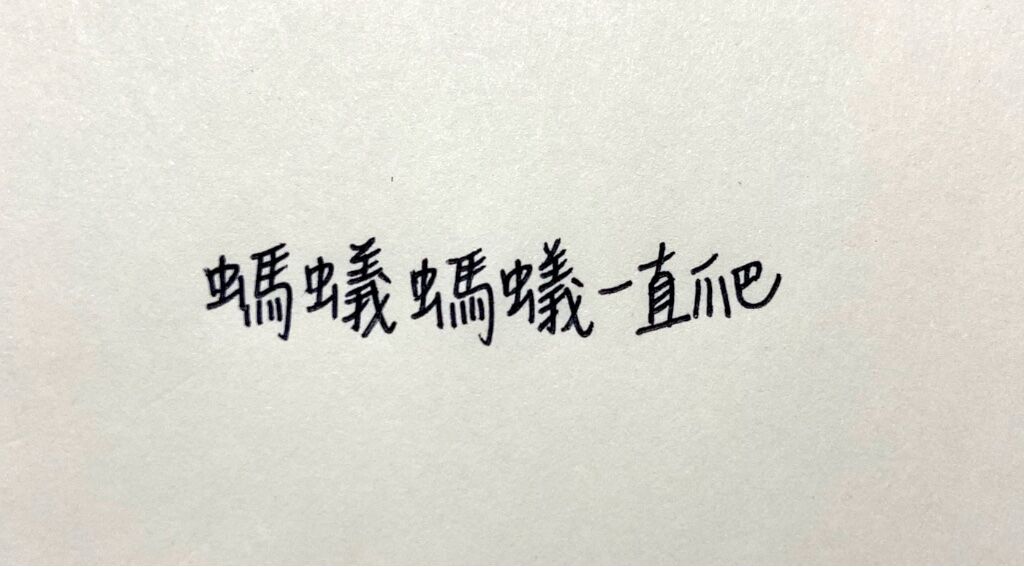 螞蟻螞蟻一直爬